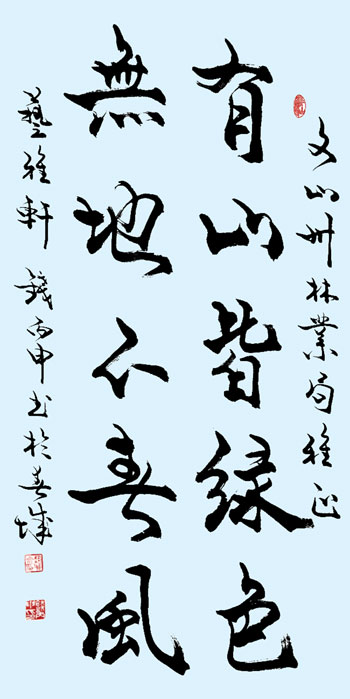 文山州林業局雅正
有山皆緑色
無地不春風
藝雅軒 錢丙申书於春城